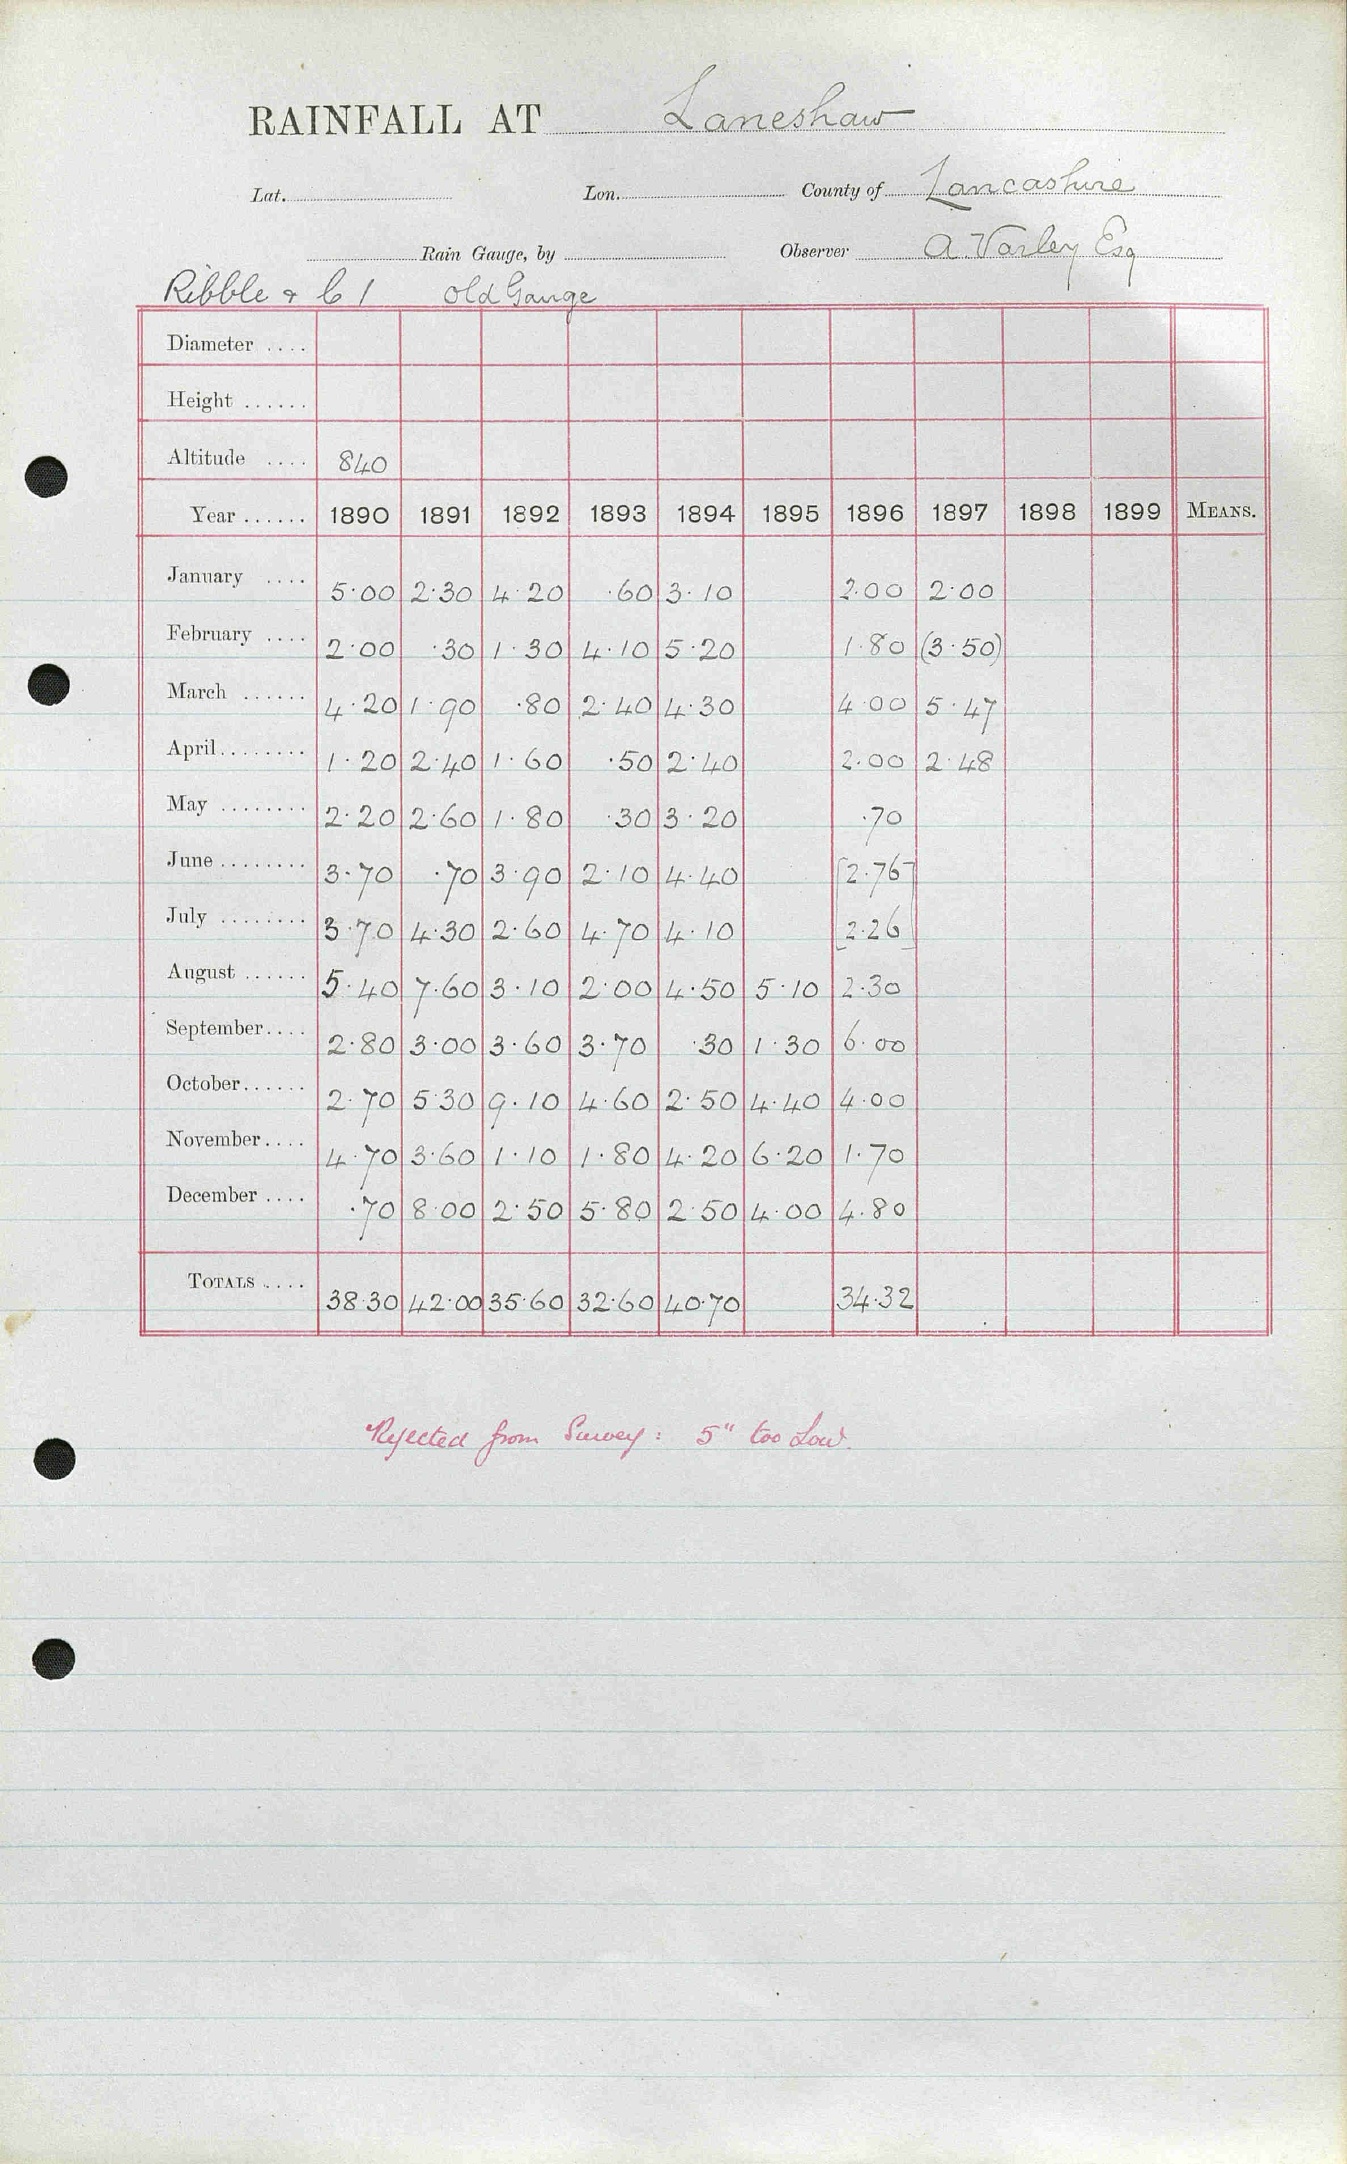 RAINFALL AT Laneshaw
Lat. Lon. County of Lancashire
Rain Gauge, by Observer A. Varley Esq
Ribble & C 1 Old Gauge
Diameter ....
Height ......
Altitude .... 840
Year ...... 1890 1891 1892 1893 1894 1895 1896 1897 1898 1899 MEANS.
January .... 5·00 2·30 4·20 ·60 3·10 2·00 2·00
February .... 2·00 ·30 1·30 4·10 5·20 1·80 (3·50)
March ...... 4·20 1·90 ·80 2·40 4·30 4·00 5·47
April ........ 1·20 2·40 1·60 ·50 2·40 2·00 2·48
May ........ 2·20 2·60 1·80 ·30 3·20 ·70
June ........ 3·70 ·70 3·90 2·10 4·40 [2·76]
July ........ 3·70 4·30 2·60 4·70 4·10 [2·26]
August ...... 5·40 7·60 3·10 2·00 4·50 5·10 2·30
September .... 2·80 3·00 3·60 3·70 ·30 1·30 6·00
October ...... 2·70 5·30 9·10 4·60 2·50 4·40 4·00
November .... 4·70 3·60 1·10 1·80 4·20 6·20 1·70
December .... ·70 8·00 2·50 5·80 2·50 4·00 4·80
TOTALS .... 38·30 42·00 35·60 32·60 40·70 34·32
Rejected from Survey: 5" too Low.